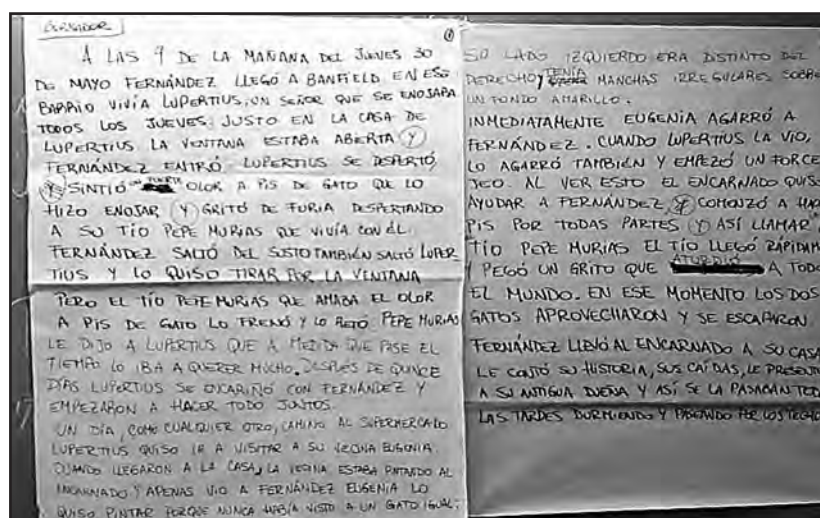 BORRADOR
①
A LAS 9 DE LA MAÑANA DEL JUEVES 30
DE MAYO FERNÁNDEZ LLEGÓ A BANFIELD. EN ESE
BARRIO VIVÍA LUPERTIUS, UN SEÑOR QUE SE ENOJABA
TODOS LOS JUEVES. JUSTO EN LA CASA DE
LUPERTIUS LA VENTANA ESTABA ABIERTA Y
FERNÁNDEZ ENTRÓ. LUPERTIUS SE DESPERTÓ,
Y SINTIÓ UN FUERTE OLOR A PIS DE GATO QUE LO
HIZO ENOJAR Y GRITÓ DE FURIA DESPERTANDO
A SU TÍO PEPE MURIAS QUE VIVÍA CON ÉL.
FERNÁNDEZ SALTÓ DEL SUSTO TAMBIÉN SALTÓ LUPER
TIUS Y LO QUISO TIRAR POR LA VENTANA
PERO EL TÍO PEPE MURIAS QUE AMABA EL OLOR
A PIS DE GATO LO FRENÓ Y LO RETÓ. PEPE MURIAS
LE DIJO A LUPERTIUS QUE A MEDIDA QUE PASE EL
TIEMPO LO IBA A QUERER MUCHO. DESPUÉS DE QUINCE
DÍAS LUPERTIUS SE ENCARIÑÓ CON FERNÁNDEZ Y
EMPEZARON A HACER TODO JUNTOS.
UN DÍA, COMO CUALQUIER OTRO, CAMINO AL SUPERMERCADO
LUPERTIUS QUISO IR A VISITAR A SU VECINA EUGENIA.
CUANDO LLEGARON A LA CASA, LA VECINA ESTABA PINTANDO AL
ENCARNADO Y APENAS VIO A FERNÁNDEZ EUGENIA LO
QUISO PINTAR PORQUE NUNCA HABÍA VISTO A UN GATO IGUAL:
SU LADO IZQUIERDO ERA DISTINTO DEL
DERECHO Y TENÍA MANCHAS IRREGULARES SOBRE
UN FONDO AMARILLO.
INMEDIATAMENTE EUGENIA AGARRÓ A
FERNÁNDEZ. CUANDO LUPERTIUS LA VIO,
LO AGARRÓ TAMBIÉN Y EMPEZÓ UN FORCE
JEO. AL VER ESTO EL ENCARNADO QUISO
AYUDAR A FERNÁNDEZ, Y COMENZÓ A HAC
PIS POR TODAS PARTES Y ASÍ LLAMAR
TÍO PEPE MURIAS. EL TÍO LLEGÓ RÁPIDAM
Y PEGÓ UN GRITO QUE ATURDIÓ A TODO
EL MUNDO. EN ESE MOMENTO LOS DOS
GATOS APROVECHARON Y SE ESCAPARON.
FERNÁNDEZ LLEVÓ AL ENCARNADO A SU CASA
LE CONTÓ SU HISTORIA, SUS CAÍDAS, LE PRESENT
A SU ANTIGUA DUEÑA Y ASÍ SE LA PASABAN TOD
LAS TARDES DURMIENDO Y PASEANDO POR LOS TECHO